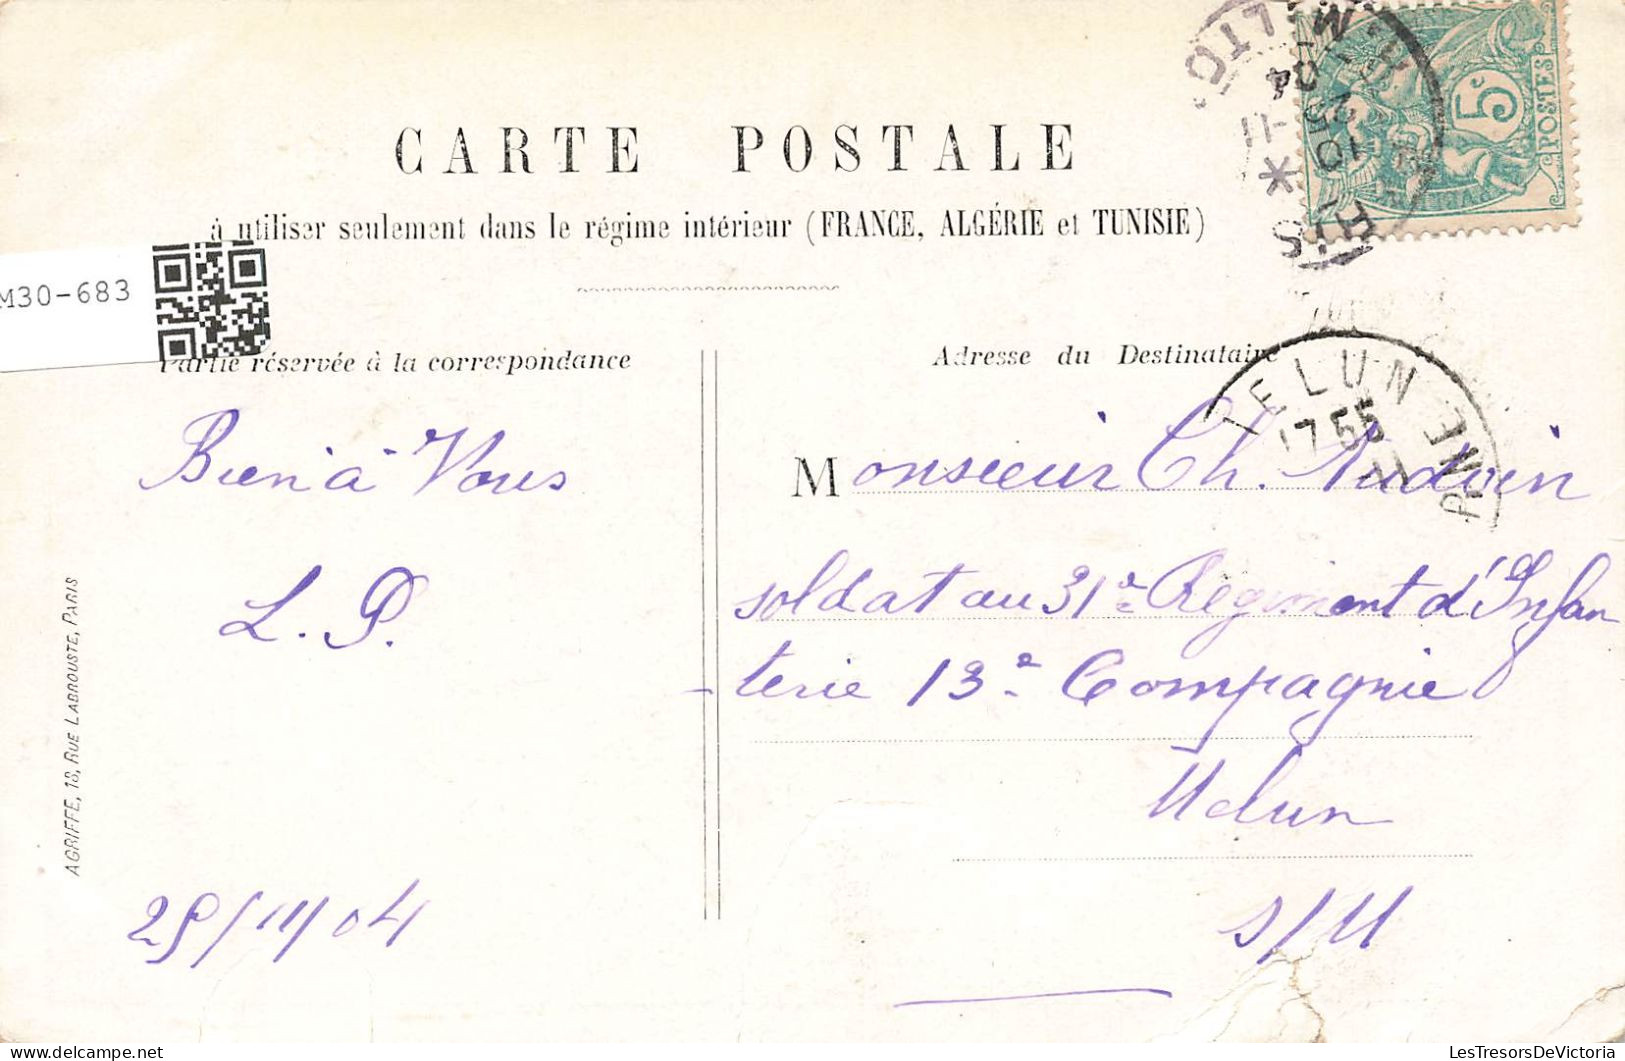 CARTE POSTALE
à utiliser seulement dans le régime intérieur (FRANCE, ALGÉRIE et TUNISIE)
M30-683
Partie réservée à la correspondance
Adresse du Destinataire
5c
POSTES
MELUN
17 55
Bien à Vous
L. P.
25/11/04
AGRIFFE, 18, RUE LABROUSTE, PARIS
Monsieur Ch. Audouin
soldat au 31e Régiment d'Infan
terie 13e Compagnie
Melun
S/M
LesTresorsDeVictoria